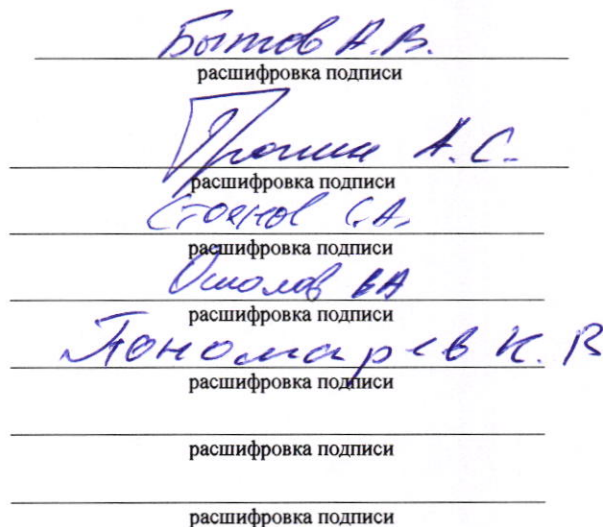 Бытов А.В.
расшифровка подписи
А.С.
расшифровка подписи
Стоянов С.А.
расшифровка подписи
ВА
расшифровка подписи
Пономарев К.В
расшифровка подписи
расшифровка подписи
расшифровка подписи